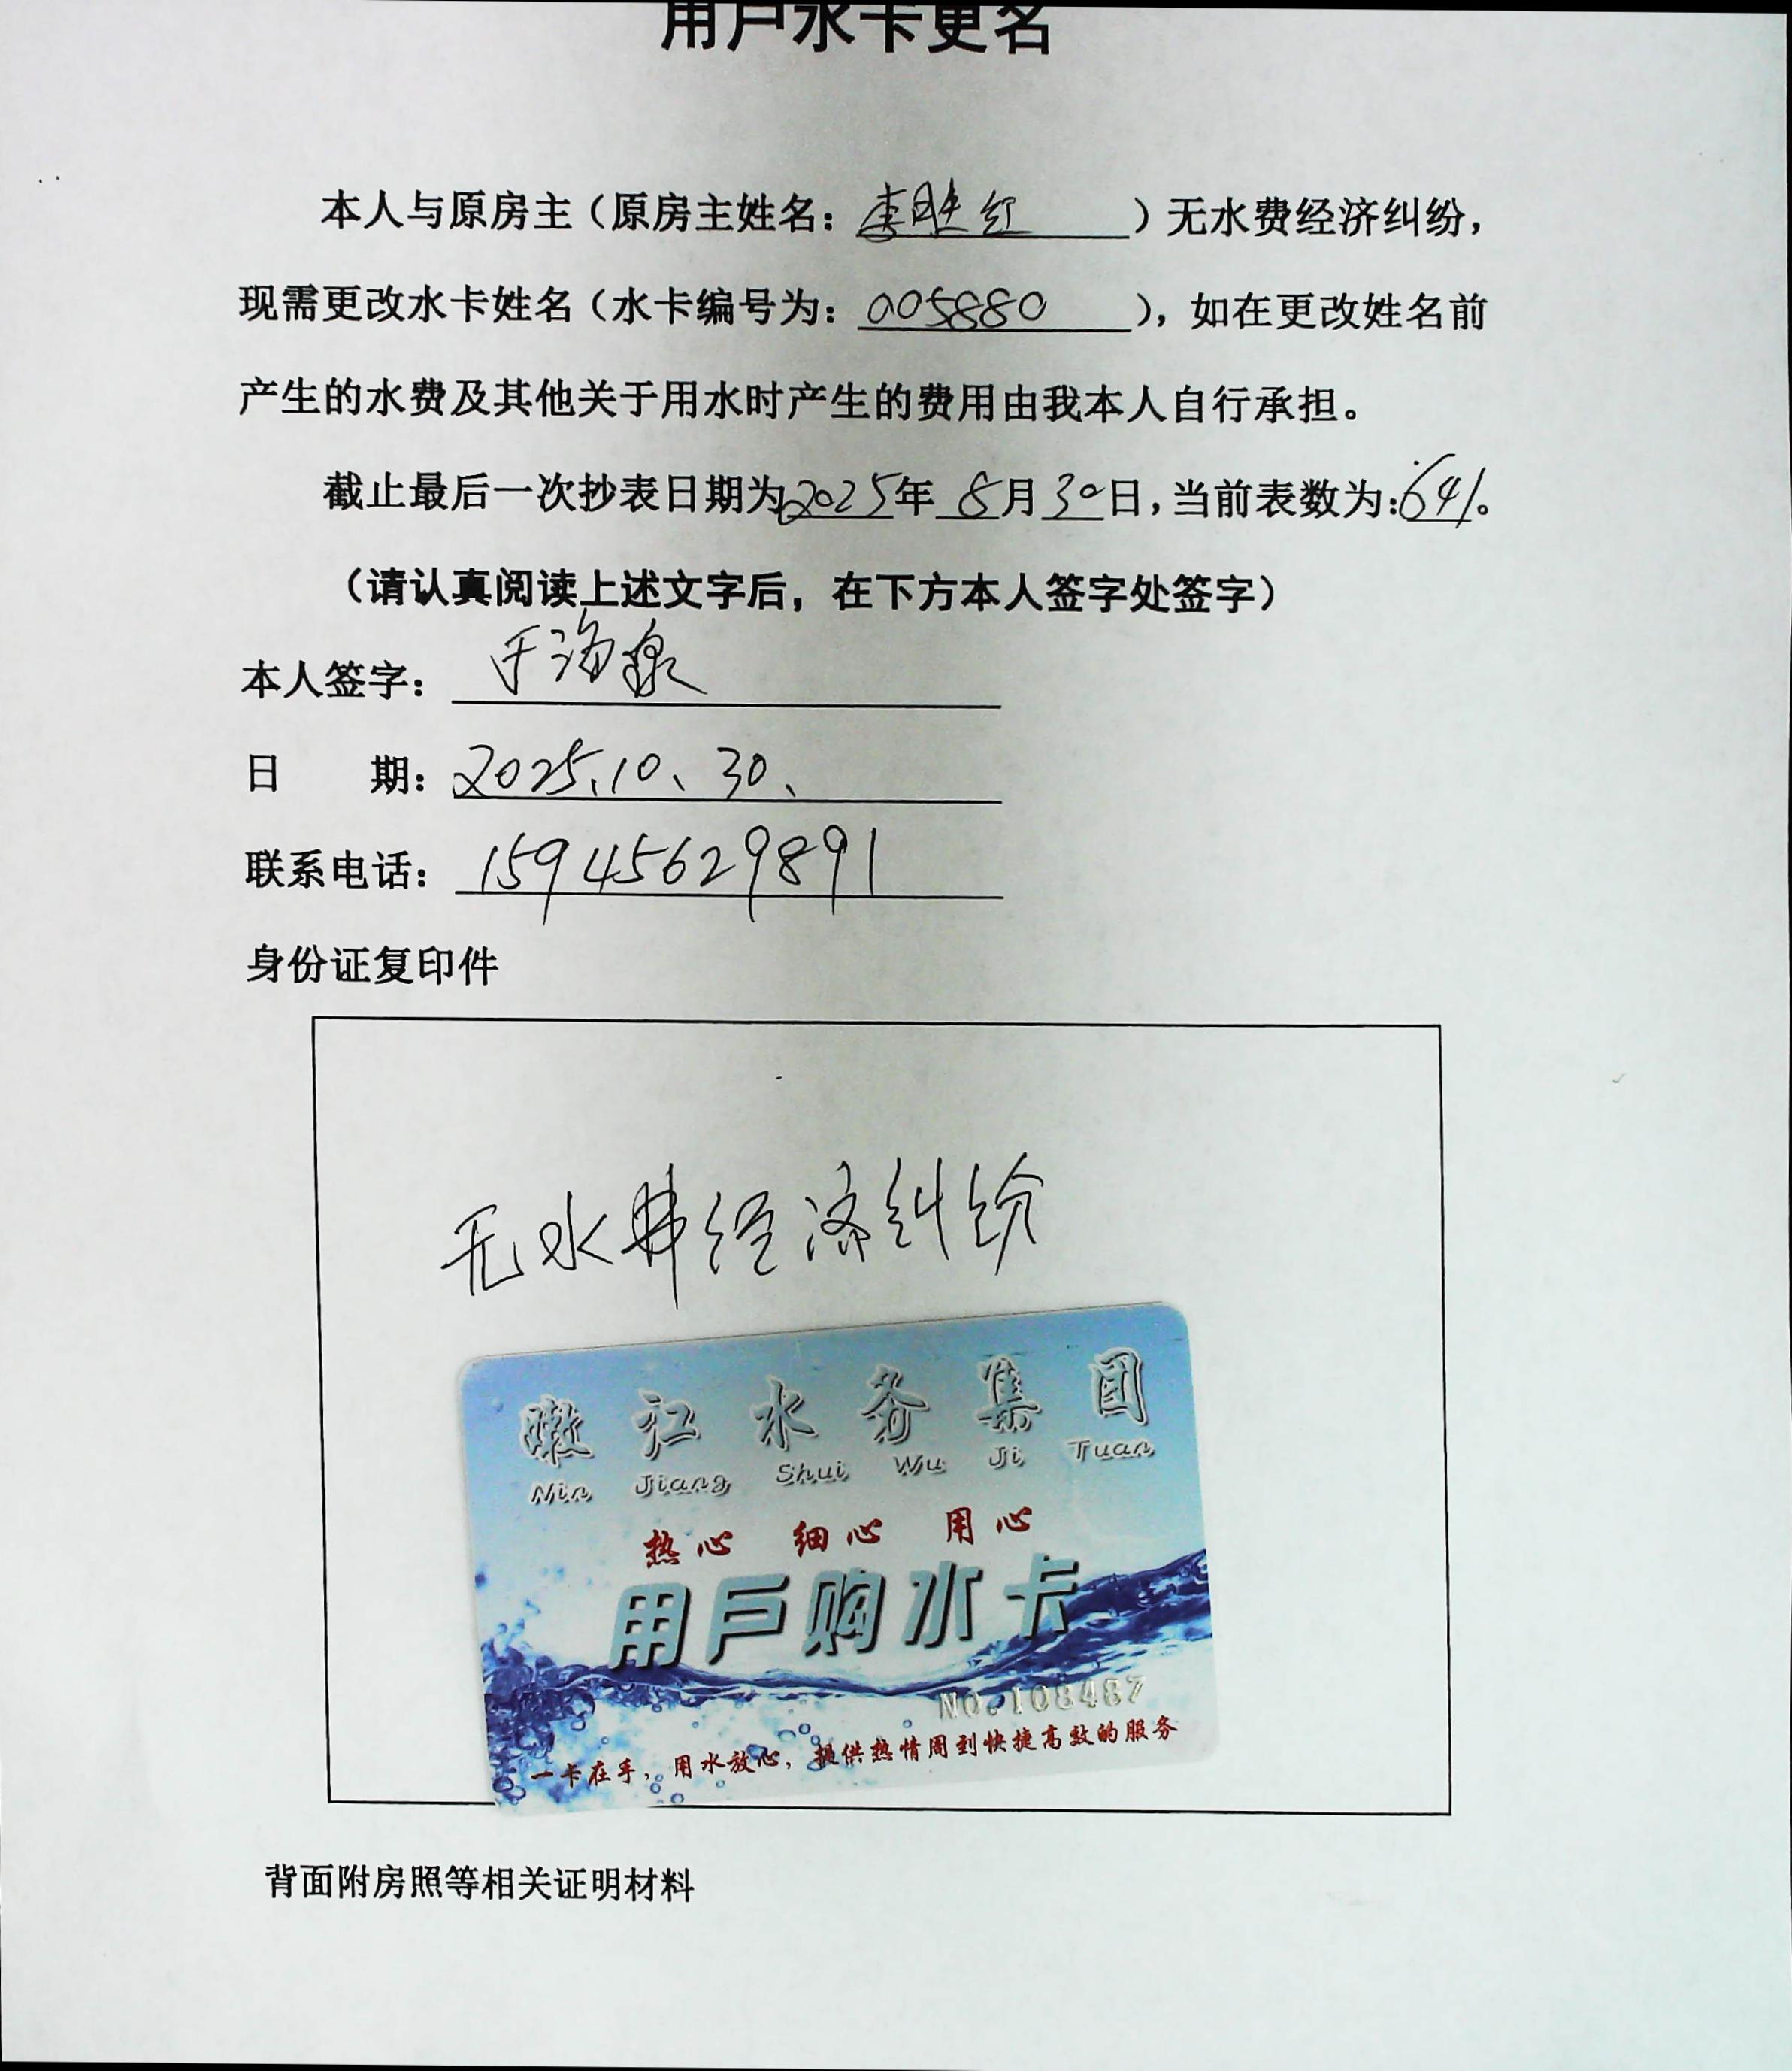 用户水卡更名
本人与原房主（原房主姓名：李胜红）无水费经济纠纷，
现需更改水卡姓名（水卡编号为：005880），如在更改姓名前
产生的水费及其他关于用水时产生的费用由我本人自行承担。
截止最后一次抄表日期为2025年8月30日，当前表数为：641。
（请认真阅读上述文字后，在下方本人签字处签字）
本人签字：于海泉
日 期：2025、10、30、
联系电话：15945629891
身份证复印件
无水费经济纠纷
嫩江水务集团
Nin Jiang Shui Wu Ji Tuan
热心 细心 用心
用户购水卡
NO.108487
一卡在手，用水放心，提供热情周到快捷高效的服务
背面附房照等相关证明材料